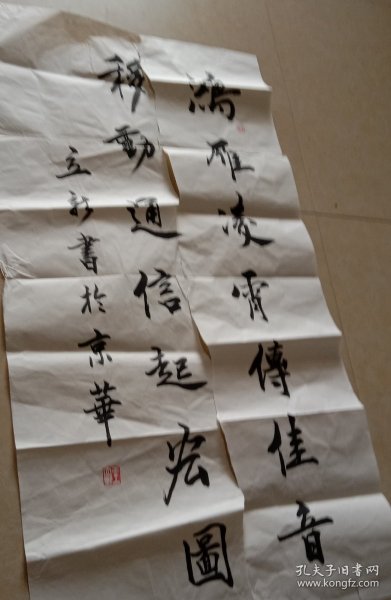 鴻雁凌霄傳佳音
移動通信起宏圖
立新書於京華
孔夫子旧书网
www.kongfz.com